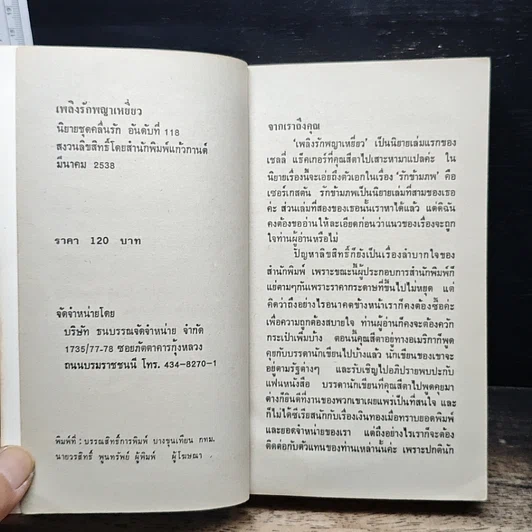 เพลิงรักพญาเหยี่ยว
นิยายชุดคลื่นรัก อันดับที่ 118
สงวนลิขสิทธิ์โดยสำนักพิมพ์แก้วกานต์
มีนาคม 2538
ราคา 120 บาท
จัดจำหน่ายโดย
บริษัท ธนบรรณจัดจำหน่าย จำกัด
1735/77-78 ซอยภัตตาคารกุ้งหลวง
ถนนบรมราชชนนี โทร. 434-8270-1
พิมพ์ที่ : บรรณสิทธิ์การพิมพ์ บางขุนเทียน กทม.
นายวรสิทธิ์ พูนทรัพย์ ผู้พิมพ์ ผู้โฆษณา
จากเราถึงคุณ
'เพลิงรักพญาเหยี่ยว' เป็นนิยายเล่มแรกของ
เชลลี่ แธ็คเกอร์ที่คุณสีตาไปเสาะหามาแปลค่ะ ใน
นิยายเรื่องนี้จะเอ่ยถึงตัวเอกในเรื่อง 'รักข้ามภพ' คือ
เซอร์เกสตัน รักข้ามภพเป็นนิยายเล่มที่สามของเธอ
ค่ะ ส่วนเล่มที่สองของเธอนั้นเราหาได้แล้ว แต่ดิฉัน
คงต้องขออ่านให้ละเอียดก่อนว่าแนวของเรื่องจะถูก
ใจท่านผู้อ่านหรือไม่
ปัญหาลิขสิทธิ์ก็ยังเป็นเรื่องลำบากใจของ
สำนักพิมพ์ เพราะขณะนี้ผู้ประกอบการสำนักพิมพ์ก็
แย่ตามๆกันเพราะราคากระดาษที่ขึ้นไปไม่หยุด แต่
คิดว่าถึงอย่างไรอนาคตข้างหน้าเราก็คงต้องซื้อค่ะ
เพื่อความถูกต้องสบายใจ ท่านผู้อ่านก็คงจะต้องควัก
กระเป๋าเพิ่มบ้าง ตอนนี้คุณสีตาอย่างอเมริกาก็พูด
คุยกับบรรดานักเขียนไปบ้างแล้ว นักเขียนของเขาจะ
อยู่ตามรัฐต่างๆ และรับเชิญไปอภิปรายพบปะกับ
แฟนหนังสือ บรรดานักเขียนที่คุณสีตาไปพูดคุยมา
ต่างก็ยินดีที่งานของพวกเขาเผยแพร่เป็นที่สนใจ และ
ก็ไม่ได้ซีเรียสนักกับเรื่องเงินทองเมื่อทราบยอดพิมพ์
และยอดจำหน่ายของเรา แต่ถึงอย่างไรเราก็จะต้อง
ติดต่อกับตัวแทนของท่านเหล่านั้นค่ะ เพราะปกตินัก